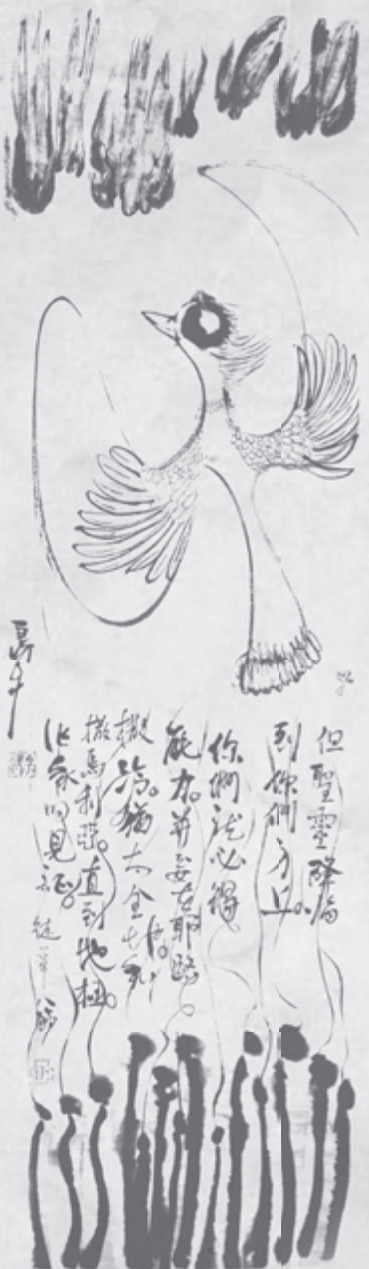 但聖靈降臨
到你們身上。
你們就必得
能力。并要在耶路
撒冷。猶太全地和
撒馬利亞。直到地極。
作我的見證。徒一章八節
島子